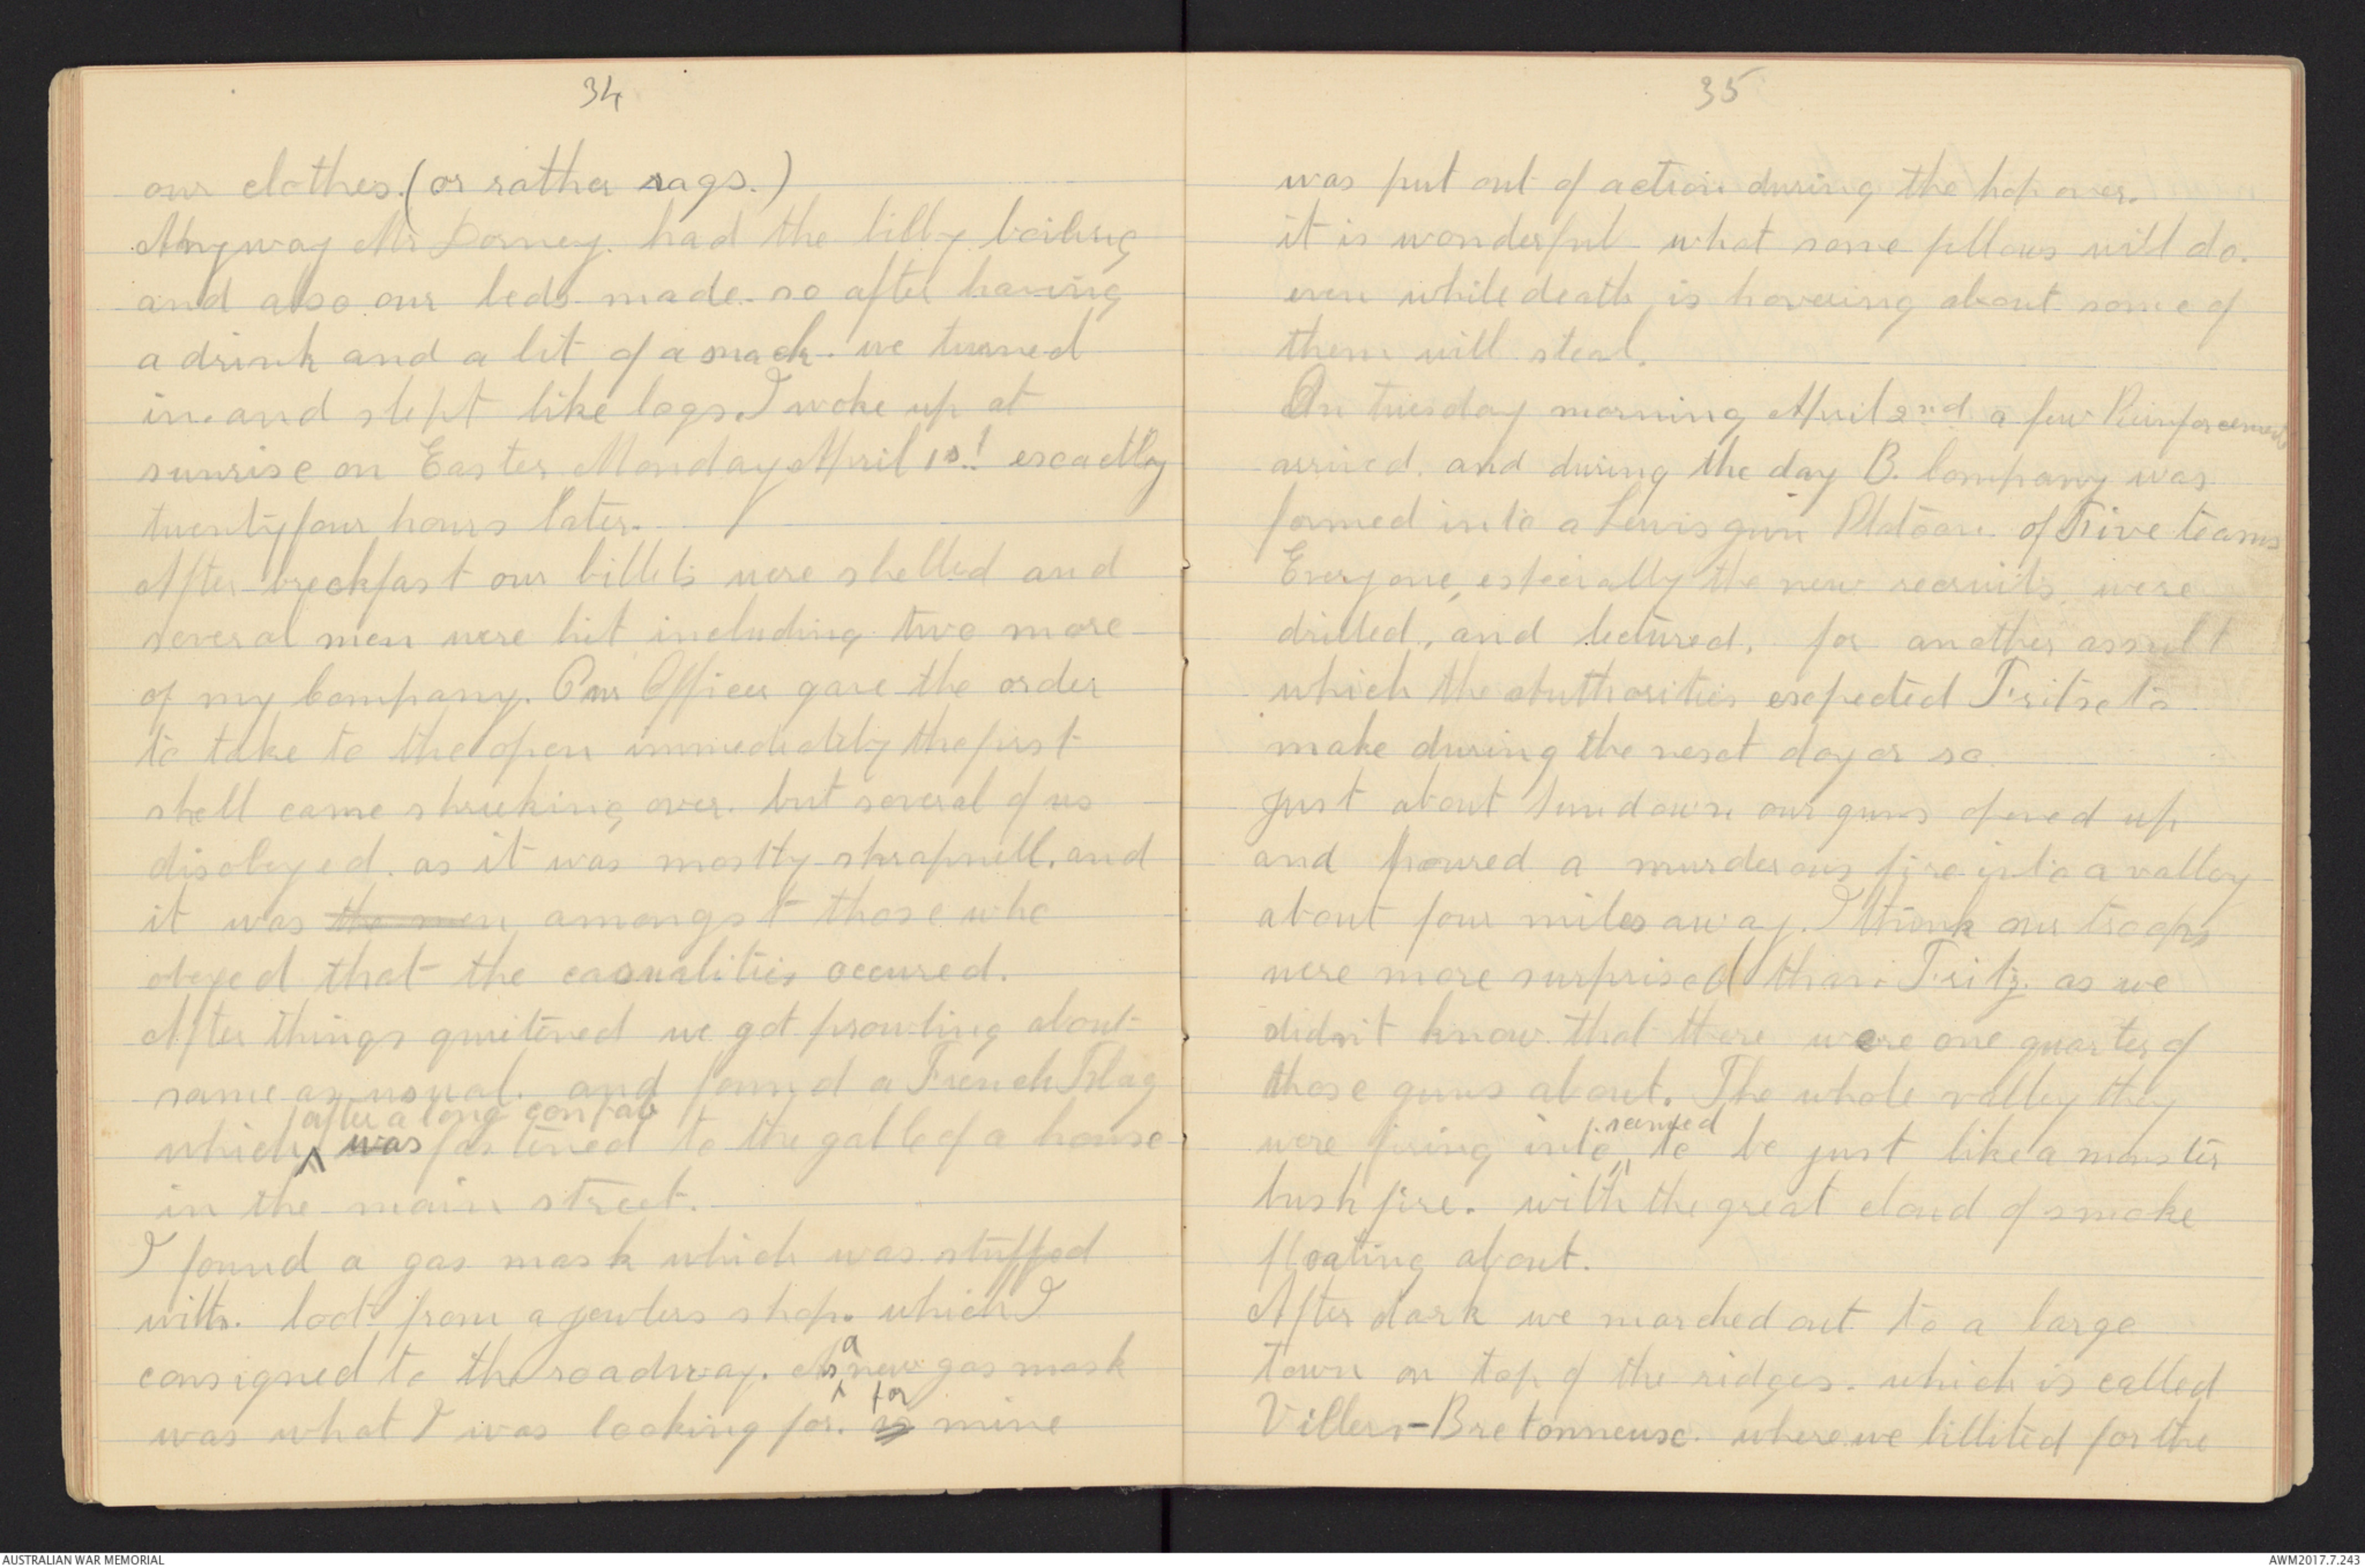 34
our clothes. (or rather rags.)
Anyway Mr Dorney. had the billy boiling
and also our beds made. so after having
a drink and a bit of a snack. we turned
in. and slept like logs. I woke up at
sunrise on Easter Monday April 1st escactley
twentyfour hours later.
After breckfast our billets were shelled and
several men were hit including two more
of my Company. Our Officer gave the order
to take to the open immediatly the first
shell came shrieking over. but several of us
disobeyed. as it was mostly shrapnell. and
it was the men amongst those who
obeyed that the casualities occured.
After things quietened we got prowling about
same as usual. and found a French Flag
after a long confab
which was fastened to the gable of a house
in the main street.
I found a gas mask which was stuffed
with. loot from a jewlers shop. which I
a
consigned to the roadway. As new gas mask
for
was what I was looking for. as mine
35
was put out of action during the hop over.
it is wonderful what some fellows will do.
even while death is hovering about some of
them will steal.
On Tuesday morning April 2nd a few Reinforcements
arrived. and during the day B. Company was
formed into a Lewis gun Platoon of Five teams
Everyone, especially the new recruits, were
drilled, and lectured, for another assult
which the Authorities exspected Fritse to
make during the nesct day or so
just about Sundown our guns opened up
and poured a murderous fire into a valley
about four miles away. I think our troops
were more surprised than Fritz. as we
didn't know that there were one quarter of
those guns about. The whole valley they
seemed
were firing into to be just like a monster
bush fire. with the great cloud of smoke
floating about.
After dark we marched out to a large
town on top of the ridges. which is called
Villers-Bretonneuse. where we billited for the
AUSTRALIAN WAR MEMORIAL
AWM2017.7.243